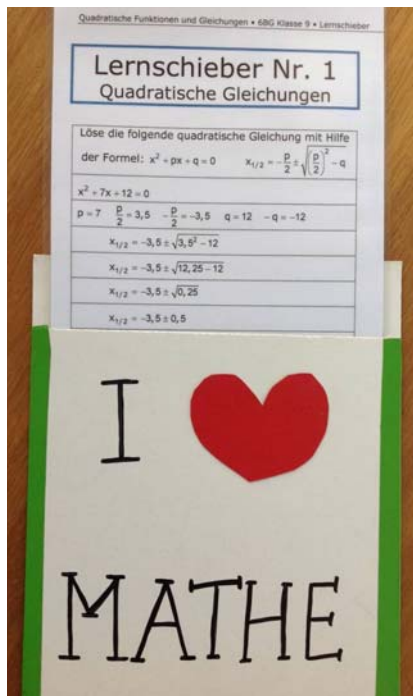 Quadratische Funktionen und Gleichungen • 6BG Klasse 9 • Lernschieber
Lernschieber Nr. 1
Quadratische Gleichungen
Löse die folgende quadratische Gleichung mit Hilfe
der Formel: x² + px + q = 0 x₁/₂ = −p/2 ± √((p/2)² − q)
x² + 7x + 12 = 0
p = 7 p/2 = 3,5 −p/2 = −3,5 q = 12 −q = −12
x₁/₂ = −3,5 ± √(3,5² − 12)
x₁/₂ = −3,5 ± √(12,25 − 12)
x₁/₂ = −3,5 ± √(0,25)
x₁/₂ = −3,5 ± 0,5
I
MATHE